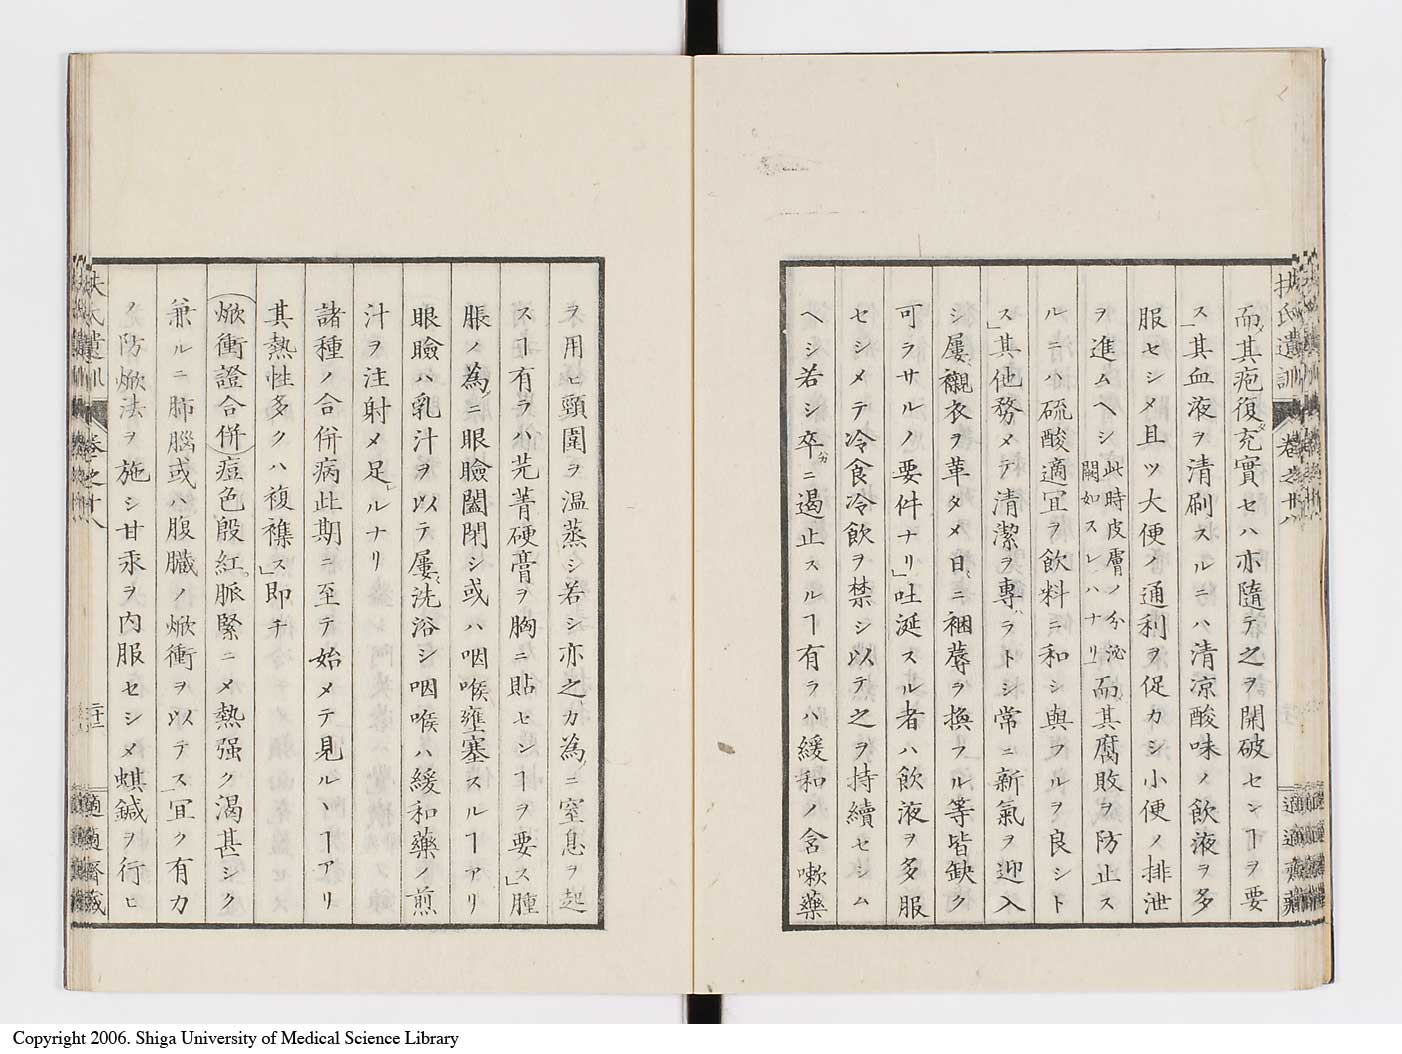 扶氏遺訓 卷之廿八 適適齋藏
而〆其疱復タ充實セハ亦隨テ之ヲ開破センヿヲ要
ス」其血液ヲ清刷スルニハ清凉酸味ノ飲液ヲ多
服セシメ且ツ大便ノ通利ヲ促カシ小便ノ排泄
ヲ進ムヘシ此時皮膚ノ分泌闕如スレハナリ」而〆其腐敗ヲ防止ス
ルニハ硫酸適冝ヲ飲料ニ和シ與フルヲ良シト
ス」其他務メテ清潔ヲ專ラトシ常ニ新氣ヲ迎入
シ屢〻襯衣ヲ革タメ日〻ニ裀蓐ヲ換フル等皆缺ク
可ラサルノ要件ナリ」吐涎スル者ハ飲液ヲ多服
セシメテ冷食冷飲ヲ禁シ以テ之ヲ持續セシム
ヘシ若シ卒カニ遏止スルヿ有ラハ緩和ノ含嗽藥
ヲ用ヒ頸圍ヲ温蒸シ若シ亦之カ為〆ニ窒息ヲ起
スヿ有ラハ芫菁硬膏ヲ胸ニ貼センヿヲ要ス」腫
脹ノ為〆ニ眼瞼闔閉シ或ハ咽喉壅塞スルヿアリ
眼瞼ハ乳汁ヲ以テ屢〻洗浴シ咽喉ハ緩和藥ノ煎
汁ヲ注射メ足」ルナリ
諸種ノ合併病此期ニ至テ始メテ見ルヽヿアリ
其熱性多クハ複襍ス」即チ
焮衝證合併 痘色殷紅脈緊ニ〆熱强ク渴甚シク
兼ルニ肺腦或ハ腹臓ノ焮衝ヲ以テス」宜ク有力
ノ防焮法ヲ施シ甘汞ヲ内服セシメ蜞鍼ヲ行ヒ
扶氏遺訓 卷之廿八 二十二 適適齋藏
Copyright 2006. Shiga University of Medical Science Library